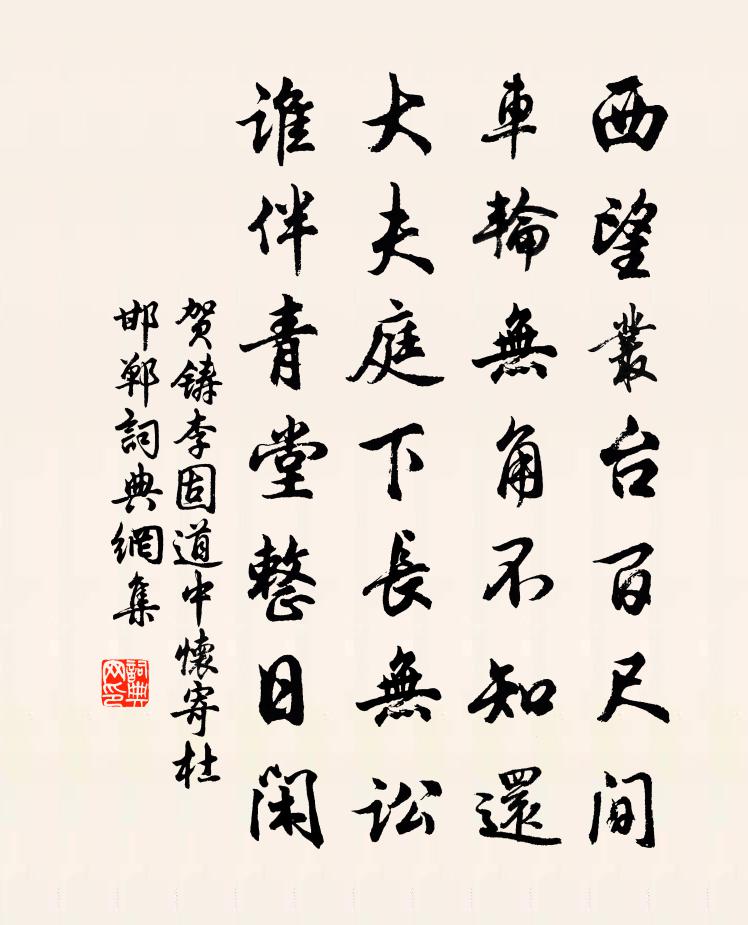 西望叢台百尺間
車輪無角不知還
大夫庭下長無訟
誰伴青堂整日閑
贺鑄李固道中懷寄杜
邯鄲詞典網集
詞典网印